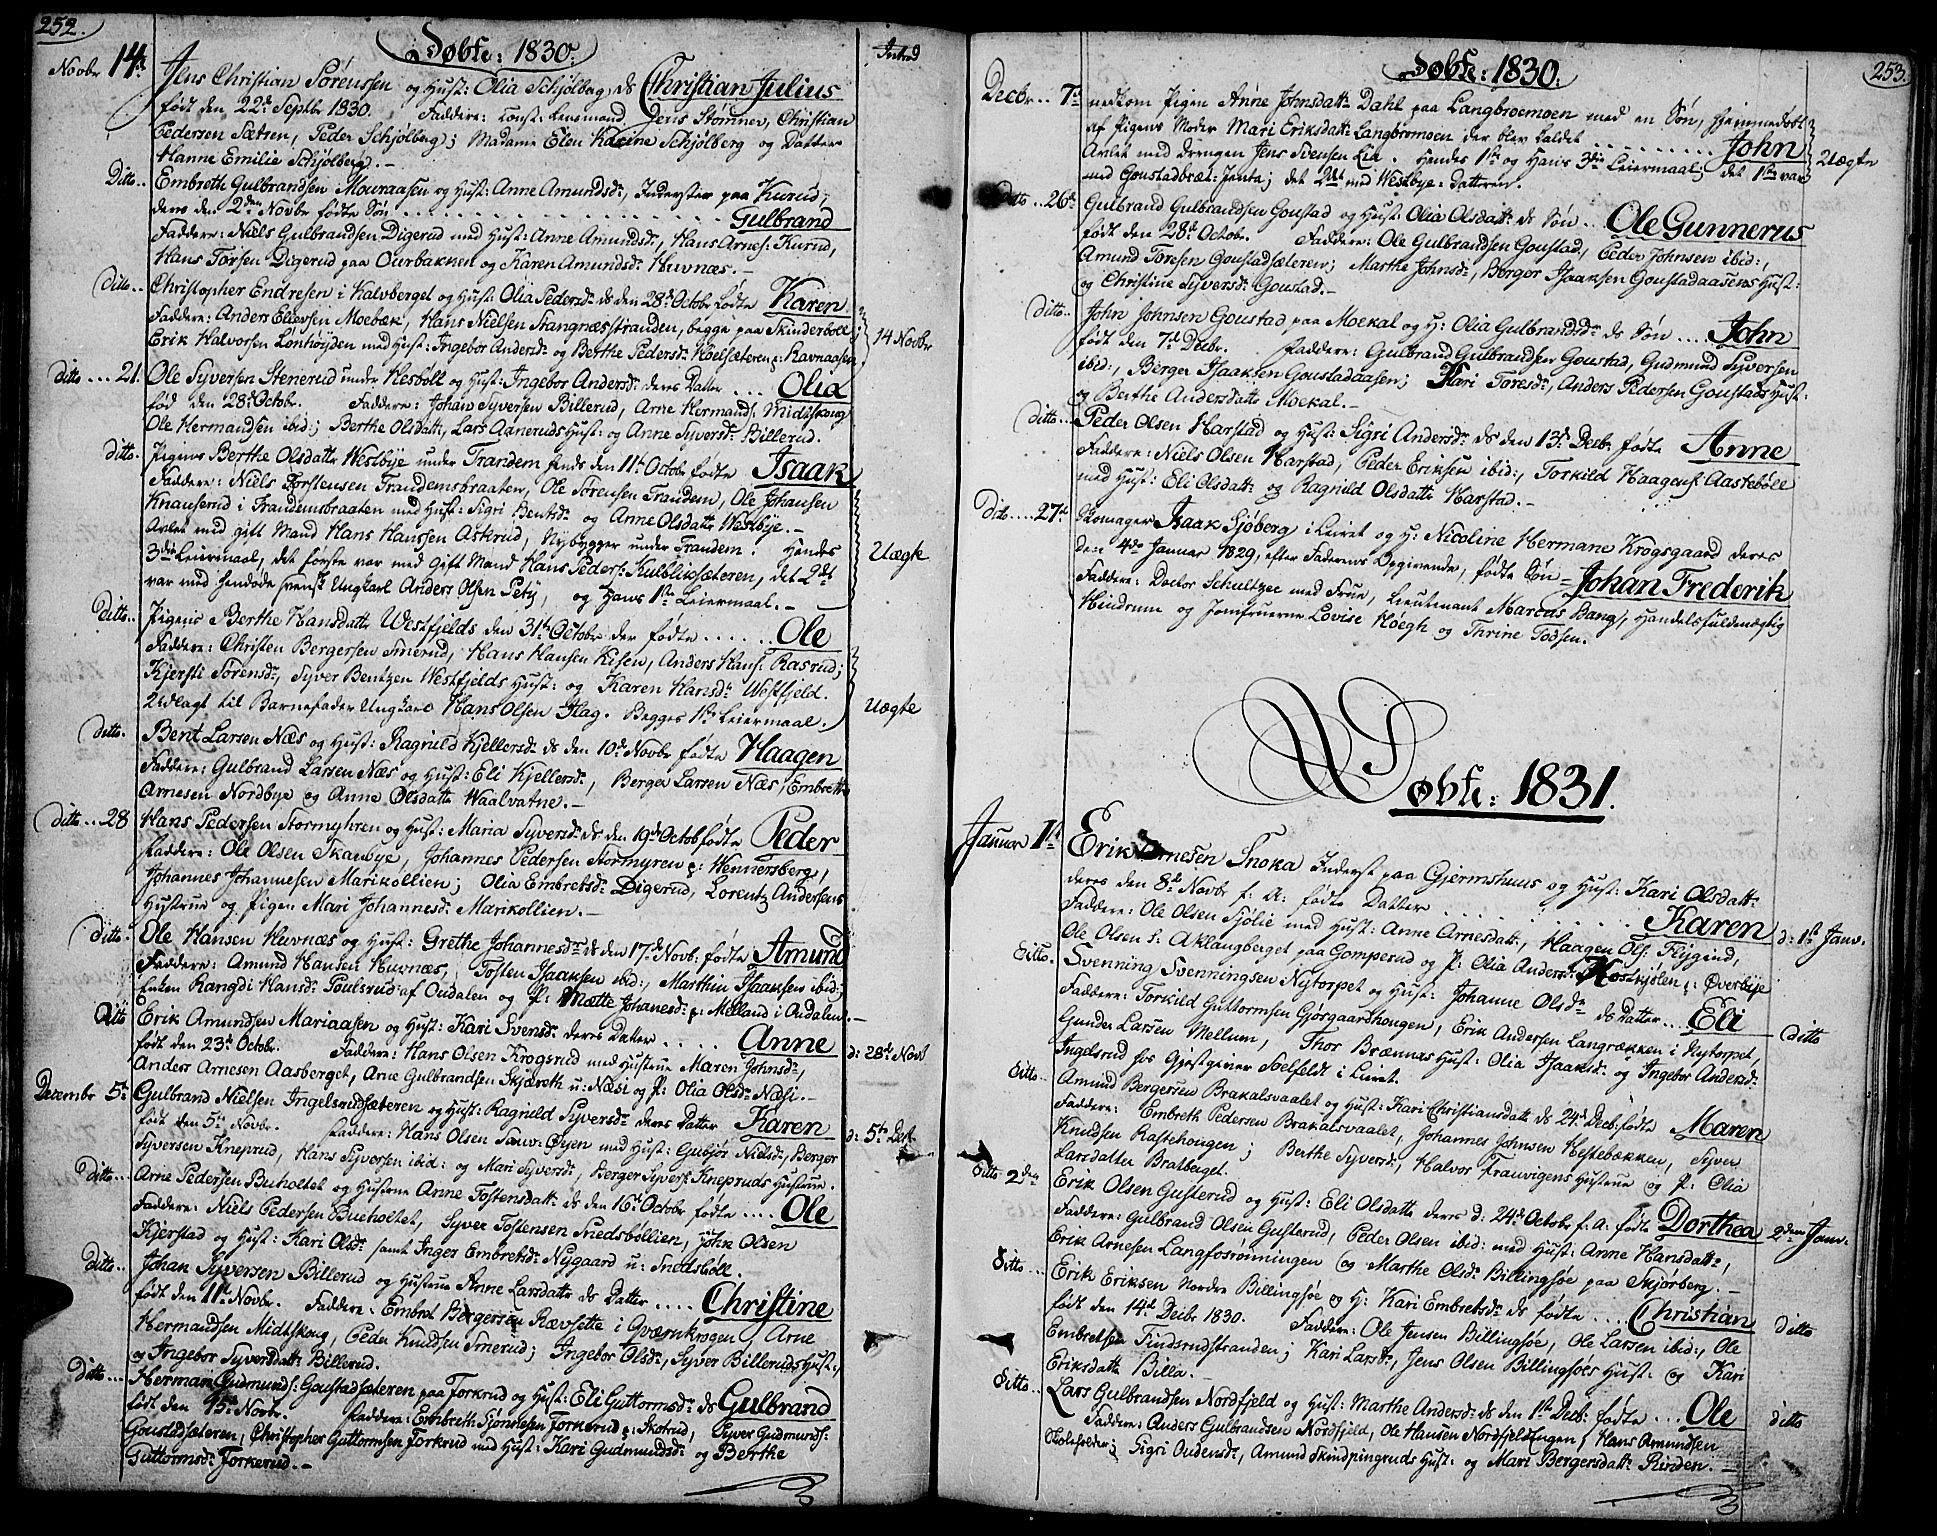 252.
Døbte: 1830.
Introd
Novbr 14de Jens Christian Sørenssen og Hust: Olia Schjølberg, ds Christian Julius
født den 22de Septbr 1830. Faddere: Const: Lensmand Jens Stømner, Christian
Pedersen Sætren, Peder Schjølberg; Madame Elen Karine Schjølberg og Datter
Hanne Emilie Schjølberg. —
Ditto.. Embreth Gulbrandsen Mouraasen og Hust: Anne Amundsdr, Inderster paa Kurud,
deres den 2den Novbr fødte Søn ........ Gulbrand
Faddere: Niels Gulbrandsen Digerud med Hust: Anne Amundsdr, Hans Arnes: Kurud,
Hans Torsen Digerud paa Ourbakken og Karen Amundsdr Huvnæs. —
ditto.. Christopher Endresen i Kalvberget og Hust: Olia Pedersdr ds den 28de Octobr fødte Karen
Faddere: Anders Eliersen Moebæk, Hans Nielsen Stangnæsstranden, begge paa Skinderböll
Erik Halvorsen Lönhöyden med Hust: Ingebor Andersdr og Berthe Pedersdr Koelsæteren p: Ravnaasen
14 Novbr
ditto.... 21. Ole Syversen Stenerud under Hesböll og Hust: Ingebor Andersdr deres Datter ... Olia
fød den 28de Octobr. Faddere: Johan Syversen Billerud, Arne Hermands: Midtskong
Ole Hermandsen ibid:; Berthe Olsdattr, Lars Aaneruds Hust: og Anne Syversdr Billerud.
ditto. Pigens Berthe Olsdatte Westbye under Trandem hends den 11te Octobr fødte Isaak
Faddere: Niels Torstensen Trandemsbraaten, Ole Sørensen Trandem, Ole Johansen
Knauserud i Trandemsbraaten med Hust: Sigri Bentsdr og Anne Olsdatte Westbye. —
Avlet med gift Mand Hans Hanssen Askerud, Nybygger under Trandem. Hendes
3die Leiermaal, det første var med gift Mand Hans Peders: Kulbliksæteren, det 2det
var med hendøde svensk Ungkarl Anders Olsen Pety, og Hans 1ste Leiermaal. —
Uægte
ditto.. Pigens Berthe Hansdatte Westfjelds den 31te October der fødte ...... Ole
Faddere: Christen Bergersen Smerud, Hans Hansen Kisen, Anders Hans: Rasrud;
Kjersti Sørensdr, Syver Bentzen Westfjelds Hust: og Karen Hansdr Westfjeld.
Udlagt til Barnefader Ungkarl Hans Olsen Flag. Begges 1ste Leiermaal.
Uægte
ditto. Bent Larsen Næs og Hust: Ragnild Kjellersdr ds den 10de Novbr fødte Haagen
Faddere: Gulbrand Larsen Næs og Hust: Eli Kjellersdr, Berger Larsen Næs, Embreth
Arnesen Nordbye og Anne Olsdatte Waalvatne. —
ditto.. 28 Hans Pedersen Stormyhren og Hust: Maria Syversdr ds den 19de Octob fødte Peder
Faddere: Ole Olsen Skanbye, Johannes Pedersen Stormyren p: Wennersberg,
Johannes Johannesen Marikollien; Olia Embretsdr Digerud, Lorentz Andersens
Hustrue og Pigen Mari Johannesdr Marikollien. —
ditto. Ole Hansen Huvnæs og Hust: Grethe Johannesdr ds den 17de Novb: fødte Amund
Faddere: Amund Hansen Huvnæs, Tosten Isaaksen ibid:, Marthin Isaaksen ibid:;
Enken Rangdi Hansdr Poulsrud af Oudalen og P: Mætte Johanesdr p: Melland i Oudalen. —
Ditto Erik Amundsen Mariaasen og Hust: Kari Svensdr deres Datter .... Anne
født den 23de Octobr. Faddere: Hans Olsen Krogsrud med Hustrue Maren Johnsdr,
Anders Arnesen Aasberget, Arne Gulbrandsen Skjæreth u: Næsi og P: Olia Olsdr Næsi. —
d: 28de Novb
Decembr 5te Gulbrand Nielsen Ingelsrudsæteren og Hust: Ragnild Syversdr deres Datter Karen
født den 5te Novbr. Faddere: Hans Olsen Sauv: Øejen med Hust: Gubjør Nielsdr, Berger
Syversen Kneprud, Hans Syversen ibid: og Mari Syversdr, Berger Syvers: Knepruds Hustrue.
d: 5te Dec.
ditto... Arne Pedersen Buholtet og Hustrue Anne Tostensdatt: ds den 16de Octobr fødte .... Ole
Faddere: Niels Pedersen Bueholtet, Syver Tostensen Snedsböllien, John Olsen
Kjerstad og Hust: Kari Olsdr samt Inger Embretsdr Nygaard u: Snedsböll.
Ditto.. Johan Syversen Billerud og Hustrue Anne Larsdatte ds Datter .... Christine
født den 11te Novbr. Faddere: Embret Bergersen Rævsette i Qværnkrogen, Arne
Hermandsen Midtskong, Peder Knudsen Smerud; Ingebor Olsdr, Syver Billeruds Hust:,
og Ingebor Syversdatt: Billerud.
Ditto... Herman Gudmunds: Goustadsæteren paa Forkrud og Hust: Eli Guttormsdr ds Gulbrand
født den 15de Novbr. Faddere: Embreth Sjønnesen Forkerud p: Skotrud, Syver Gudmunds:
Goustadsæteren, Christopher Guttormsen Forkrud med Hust: Kari Gudmundsdr og Berthe
Guttormsdr Forkerud. —
253.
Døbte: 1830.
Decbr.. 7de nedkom Pigen Anne Johnsdatt: Dahl paa Langbroemoen med en Søn, hjemmedøbt
af Pigens Moder Mari Eriksdatt: Langbromoen der blev kaldet ........ John
Avlet med Drengen Jens Svensen Lia. Hendes 1ste og Hans 3die Leiermaal; det 1ste var
med Goustadbræt: Jenta; det 2det med Westbye: Datteren.
Uægte
ditto.. 26de Gulbrand Gulbrandsen Goustad og Hust: Olia Olsdatt: ds Søn .. Ole Gunnerus
født den 28de Octobr. Faddere: Ole Gulbrandsen Goustad, Peder Johnsen ibid:,
Amund Toresen Goustadsæteren; Marthe Johnsdr, Berger Isaaksen Goustadaasens Hust:
og Christine Syversdr Goustad. —
ditto.. John Johnsen Goustad paa Moekal og H: Olia Gulbrandsdr ds Søn .... John
født den 7de Decbr. Faddere: Gulbrand Gulbrandsen Goustad, Gudmund Syversen
ibid:, Berger Isaaksen Goustadaasen; Kari Toresdr, Anders Pedersen Goustads Hust:
og Berthe Andersdatte Moekal. —
ditto... Peder Olsen Harstad og Hust: Sigri Andersdr ds den 13de Decbr fødte Anne
Faddere: Niels Olsen Harstad, Peder Eriksen ibid:, Torkild Haagens: Aasteböll
med Hust: Eli Olsdatt: og Ragnild Olsdatte Harstad. —
Dito.... 27de Skomager Isaak Sjöberg i Leiret og H: Nicoline Hermane Krogsgaard deres
den 4de Januar 1829, efter Faderens Opgivende, fødte Søn = Johan Frederik
Faddere: Doctor Schultzee med Frue, Lieutenant Marcus Bang, Handelsfuldmægtig
Hindrum og Jomfruerne Lovise Høegh og Thrine Todsen.
Døbte: 1831.
Januar 1ste Erik Arnesen Snoka Inderst paa Gjermshuus og Hust: Kari Olsdatt:
deres den 8de Novbr f: A: fødte Datter ........ Karen
Faddere: Ole Olsen Sjölie med Hust: Anne Arnesdatt:, Haagen Ols: Flygind,
Ole Olsen S: Aklangberget paa Gomperud og P: Olia Andersdr Kostkjølen p: Overbye
d: 1ste Janv.
Ditto. Svenning Svenningsen Nytorpet og Hust: Johanne Olsdr ds Datter... Eli
Faddere: Torkild Guttormsen Gjørsgaardhougen, Erik Andersen Langrækken i Nytorpet,
Gunder Larsen Mellum, Thor Brænnæs Hust: Olia Isaaksdr og Ingebor Andersdr
Ingelsrud hos Gjestgiver Soelfeldt i Leiret.
ditto
Ditto.. Amund Bergersen Brakalsvaalet og Hust: Kari Christiansdatt ds 24de Decb: fødte Maren
Faddere: Embreth Pedersen Brakalsvaalet, Johannes Johnsen Hestebækken, Syver
Knudsen Rastehougen; Berthe Syversdr, Halvor Trauvigens Hustrue og P: Olia
Larsdatter Bratberget.
Ditto 2den Erik Olsen Gusterud og Hust: Eli Olsdatte deres d: 24de Octobr f: A: fødte Dorthea
Faddere: Gulbrand Olsen Gusterud, Peder Olsen ibid: med Hust: Anne Hansdatt:,
Erik Arnesen Langfosrønningen og Marthe Olsdr Billingsöe paa Skjørberg. —
2den Janv.
Ditto... Erik Eriksen Nordre Billingsöe og H: Kari Embretsdr ds fødte .... Christian
født den 14de Decbr 1830. Faddere: Ole Jensen Billingsöe, Ole Larsen ibid:, Ole
Embretsen Findsrudstranden; Kari Larsdr, Jens Olsen Billingsöes Hust: og Kari
Eriksdatte Billa. —
ditto
Ditto.. Lars Gulbrandsen Nordfjeld og Hust: Marthe Andersdr ds den 1ste Decb: fødte ... Ole
Faddere: Anders Gulbrandsen Nordfjeld, Ole Hansen Nordfjeldengen, Hans Amundsen
Skoleholder; Sigri Oudensdr, Amund Skindpingruds Hust: og Mari Bergersdatt: Rinden. —
ditto